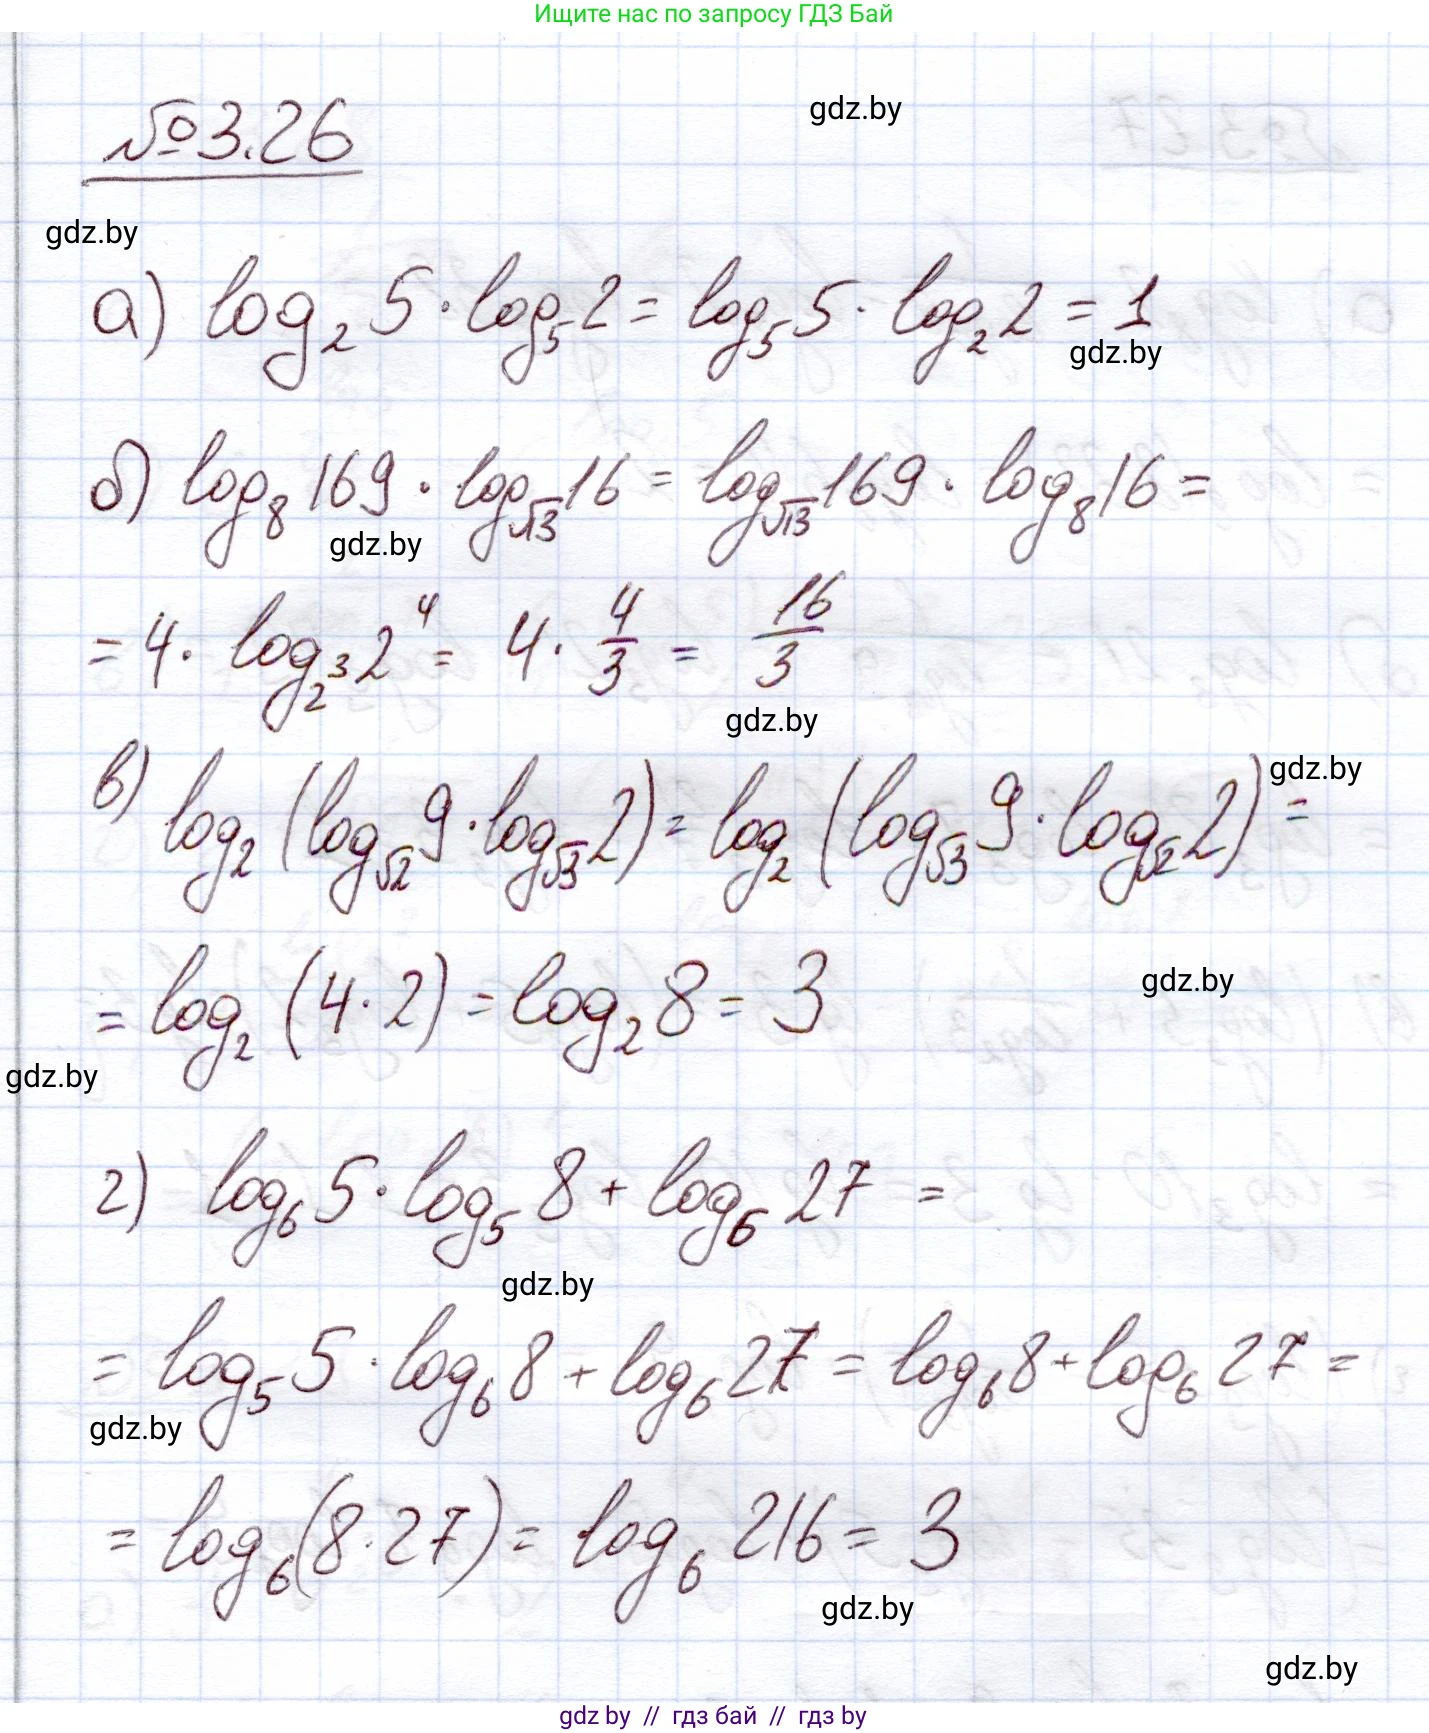 Ищите нас по запросу ГДЗ Бай
gdz.by
№3.26
gdz.by
а) log₂ 5 · log₅ 2 = log₅ 5 · log₂ 2 = 1
gdz.by
б) log₈ 169 · log_√13 16 = log_√13 169 · log₈ 16 =
gdz.by
= 4 · log_2³ 2⁴ = 4 · 4/3 = 16/3
gdz.by
gdz.by
в) log₂ (log_√2 9 · log_√3 2) = log₂ (log_√3 9 · log_√2 2) =
gdz.by
= log₂ (4 · 2) = log₂ 8 = 3
gdz.by
г) log₆ 5 · log₅ 8 + log₆ 27 =
gdz.by
= log₅ 5 · log₆ 8 + log₆ 27 = log₆ 8 + log₆ 27 =
gdz.by
= log₆ (8 · 27) = log₆ 216 = 3
gdz.by
gdz.by
gdz by // гдз бай // гдз by